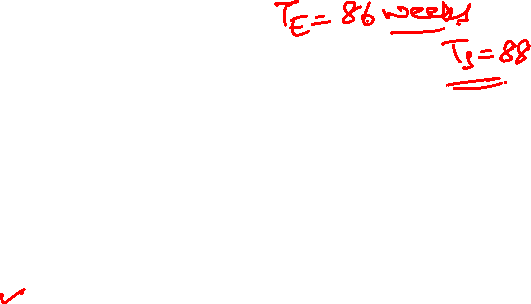 T_E = 86 weeks
T_S = 88